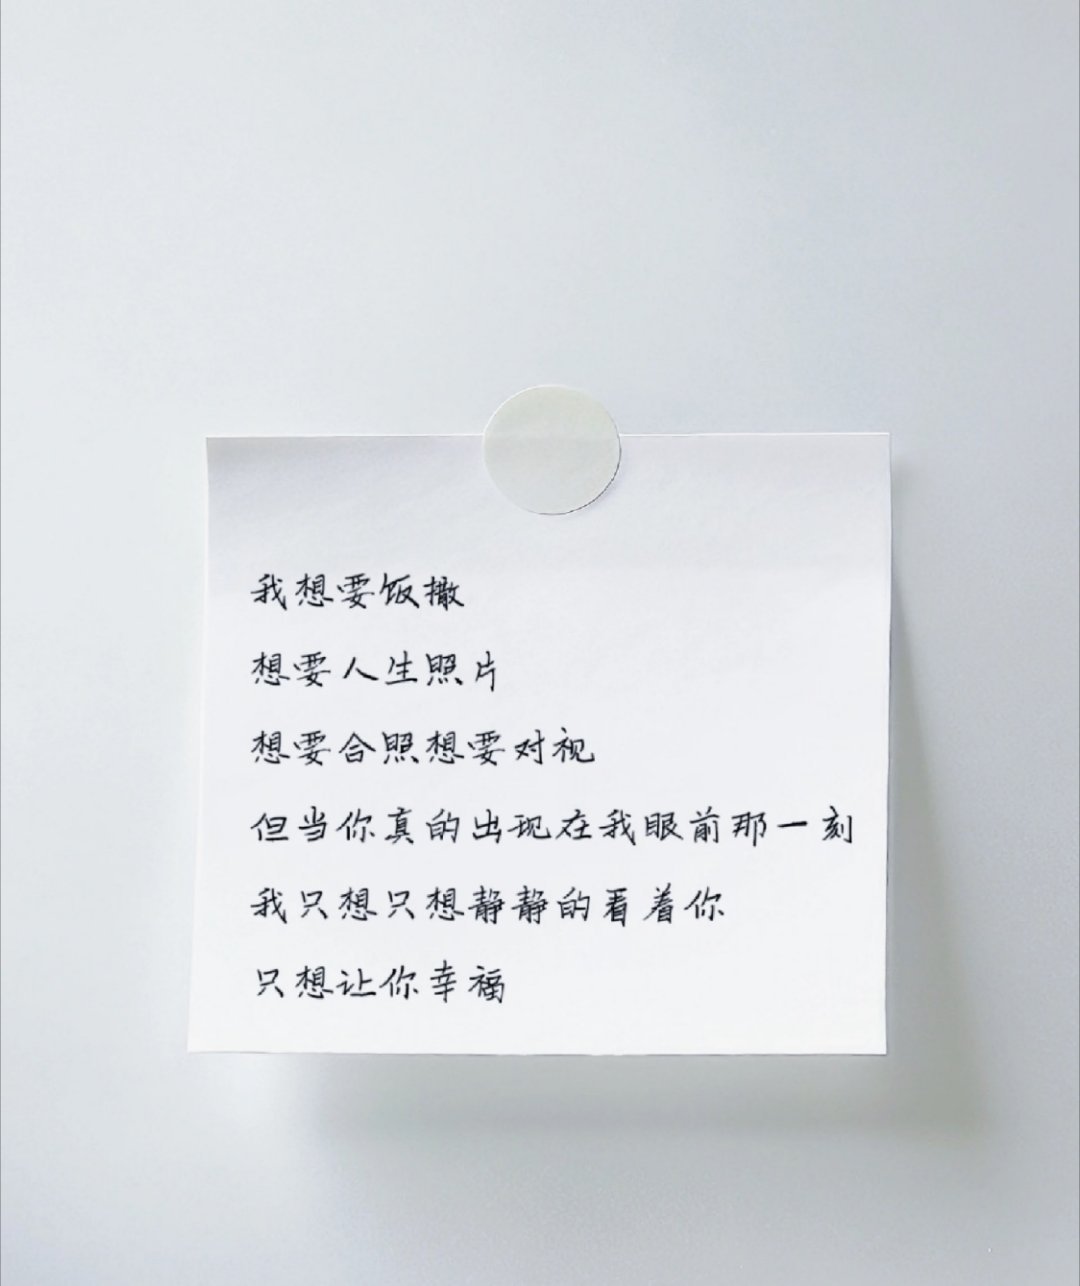 我想要饭撒
想要人生照片
想要合照想要对视
但当你真的出现在我眼前那一刻
我只想只想静静的看着你
只想让你幸福